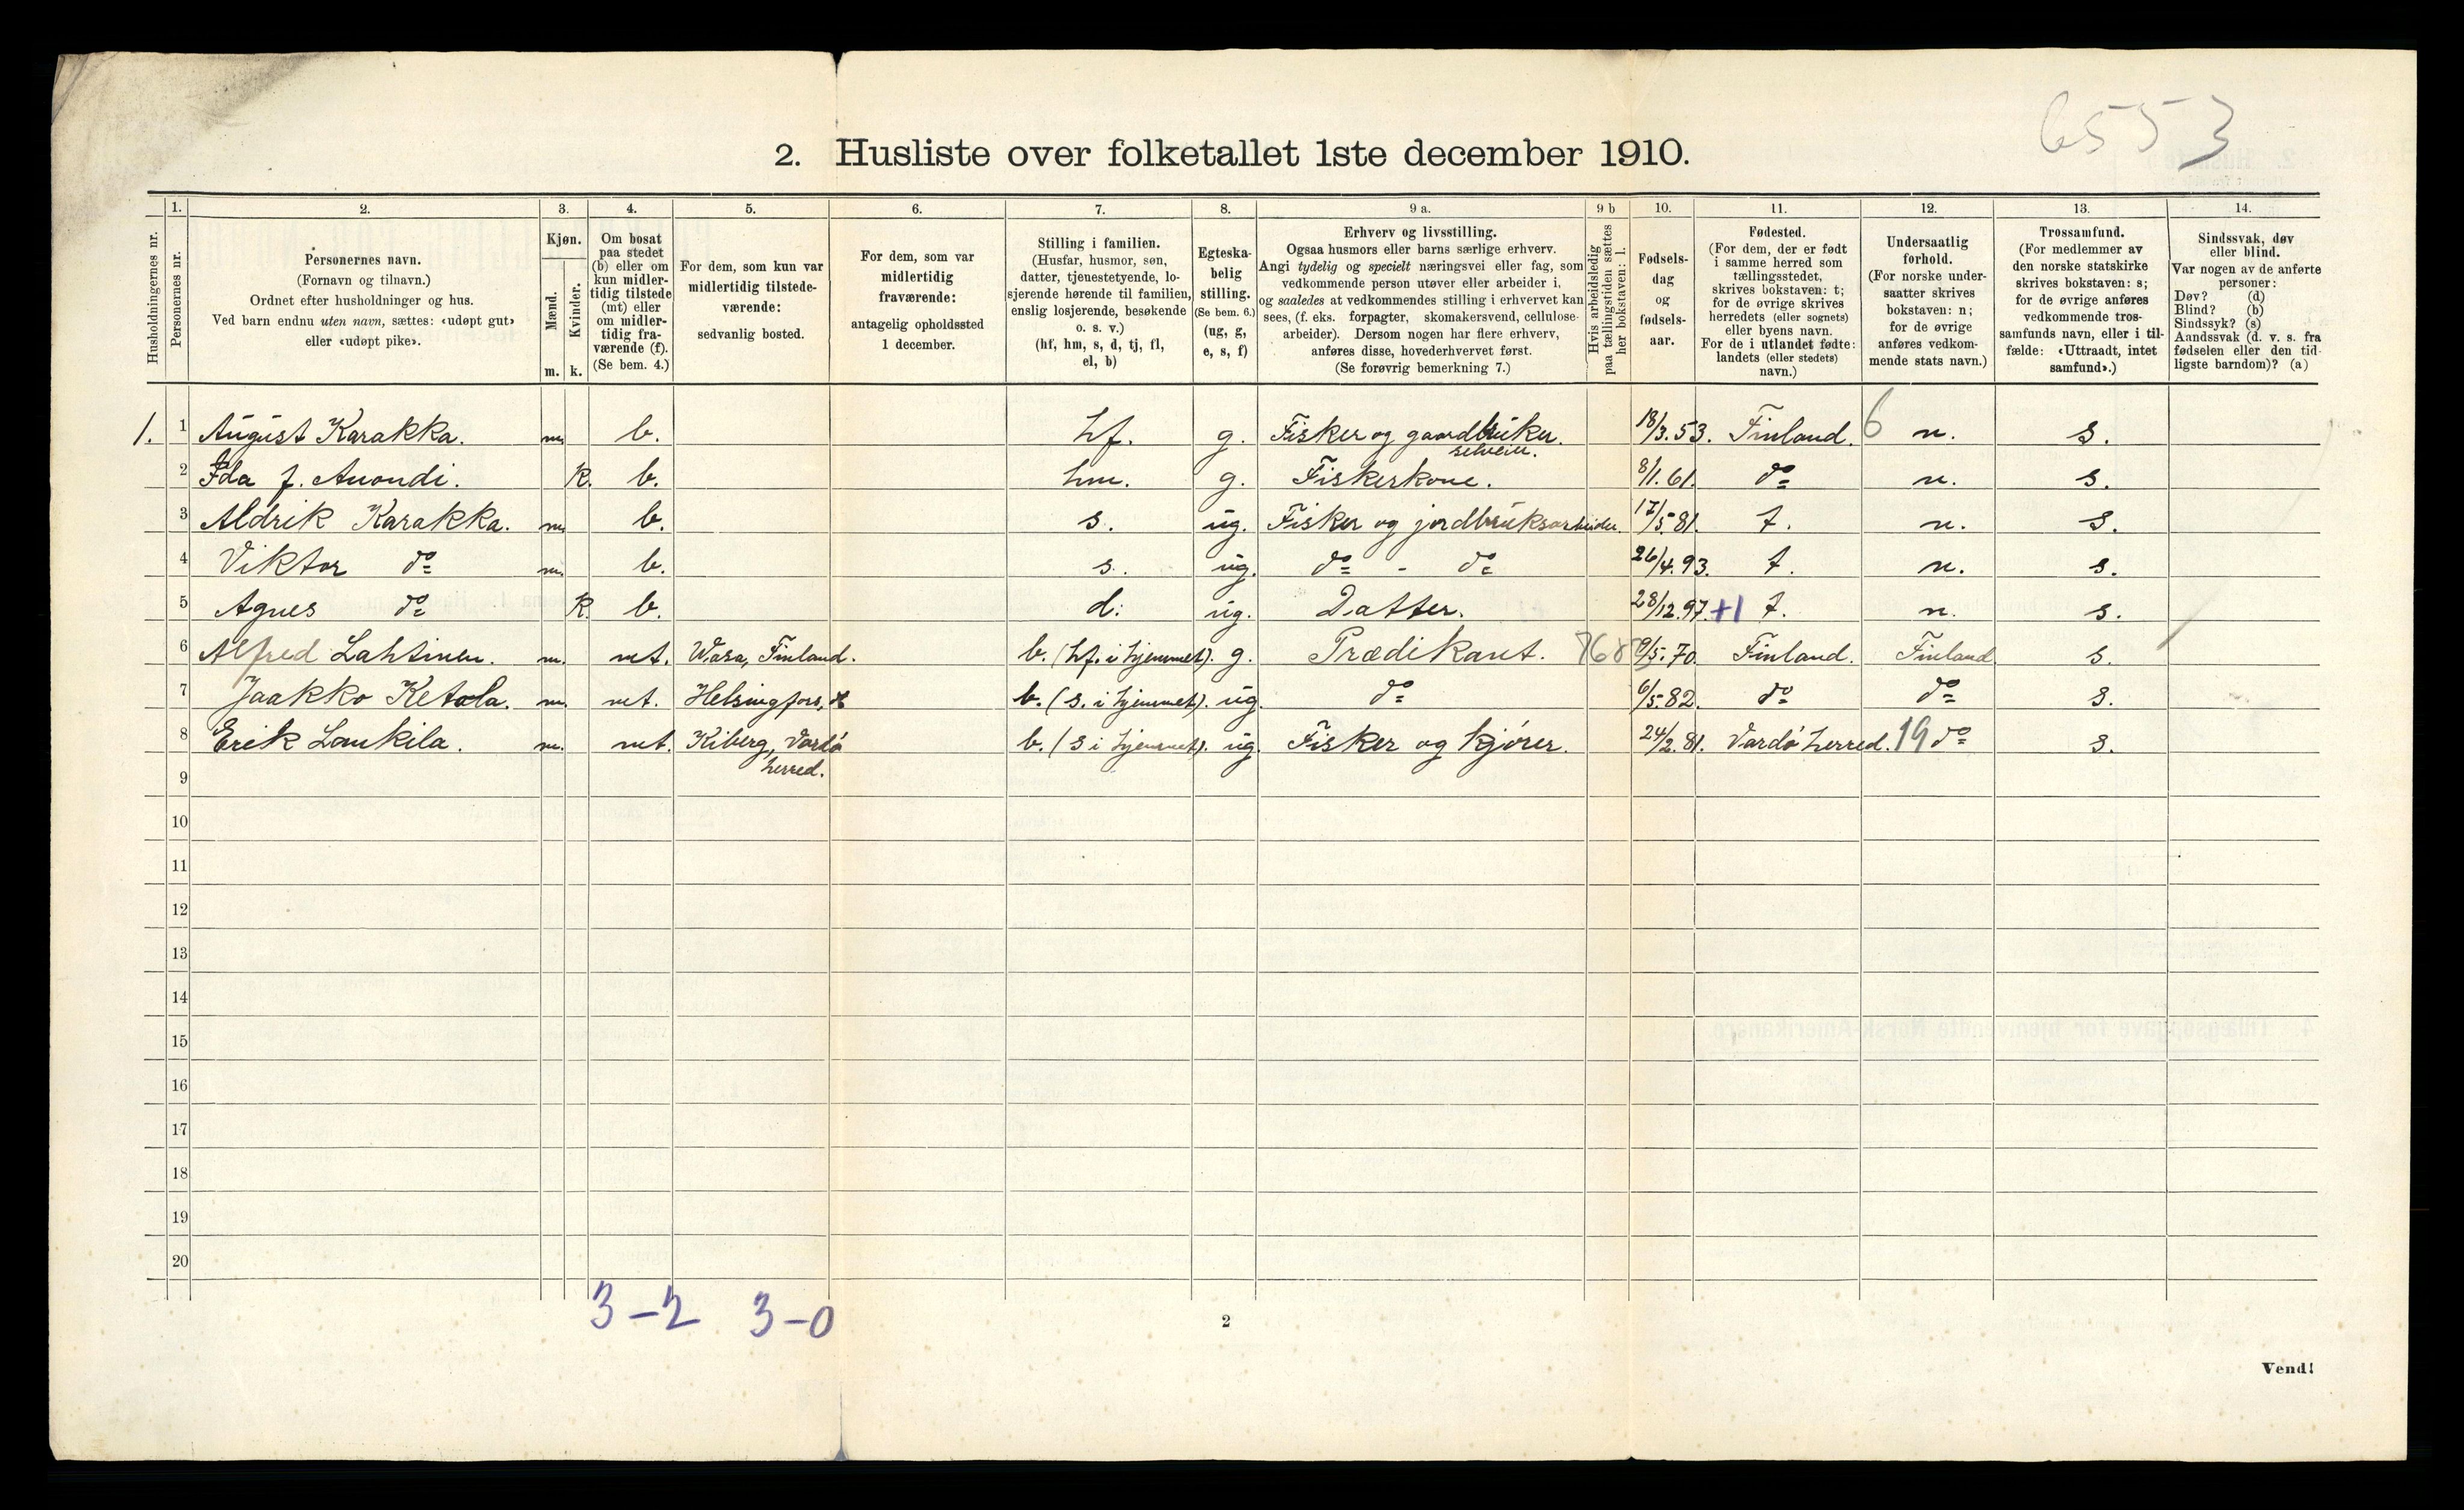 6553
2. Husliste over folketallet 1ste december 1910.
Husholdningernes nr.
1. Personernes nr.
2. Personernes navn.
(Fornavn og tilnavn.)
Ordnet efter husholdninger og hus.
Ved barn endnu uten navn, sættes: «udøpt gut»
eller «udøpt pike».
3. Kjøn.
Mænd. Kvinder.
m. k.
4. Om bosat
paa stedet
(b) eller om
kun midler-
tidig tilstede
(mt) eller
om midler-
tidig fra-
værende (f).
(Se bem. 4.)
5. For dem, som kun var
midlertidig tilstede-
værende:
sedvanlig bosted.
6. For dem, som var
midlertidig
fraværende:
antagelig opholdssted
1 december.
7. Stilling i familien.
(Husfar, husmor, søn,
datter, tjenestetyende, lo-
sjerende hørende til familien,
enslig losjerende, besøkende
o. s. v.)
(hf, hm, s, d, tj, fl,
el, b)
8. Egteska-
belig
stilling.
(Se bem. 6.)
(ug, g,
e, s, f)
9 a. Erhverv og livsstilling.
Ogsaa husmors eller barns særlige erhverv.
Angi tydelig og specielt næringsvei eller fag, som
vedkommende person utøver eller arbeider i,
og saaledes at vedkommendes stilling i erhvervet kan
sees, (f. eks. forpagter, skomakersvend, cellulose-
arbeider). Dersom nogen har flere erhverv,
anføres disse, hovederhvervet først.
(Se forøvrig bemerkning 7.)
9 b Hvis arbeidsledig
paa tællingstiden sættes
her bokstaven: l.
10. Fødsels-
dag
og
fødsels-
aar.
11. Fødested.
(For dem, der er født
i samme herred som
tællingsstedet,
skrives bokstaven: t;
for de øvrige skrives
herredets (eller sognets)
eller byens navn.
For de i utlandet fødte:
landets (eller stedets)
navn.)
12. Undersaatlig
forhold.
(For norske under-
saatter skrives
bokstaven: n;
for de øvrige
anføres vedkom-
mende stats navn.)
13. Trossamfund.
(For medlemmer av
den norske statskirke
skrives bokstaven: s;
for de øvrige anføres
vedkommende tros-
samfunds navn, eller i til-
fælde: «Uttraadt, intet
samfund».)
14. Sindssvak, døv
eller blind.
Var nogen av de anførte
personer:
Døv? (d)
Blind? (b)
Sindssyk? (s)
Aandssvak (d. v. s. fra
fødselen eller den tid-
ligste barndom)? (a)
1. 1 August Karakka. m. b. hf. g. Fisker og gaardbruker. selveier. 18/3.53. Finland. 6 n. s.
2 Ida f. Auondi. k. b. hm. g. Fiskerkone. 8/1.61. do n. s.
3 Aldrik Karakka. m. b. s. ug. Fisker og jordbruksarbeider. 17/5.81. t. n. s.
4 Viktor do m. b. s. ug. do - do 26/4.93. t. n. s.
5 Agnes do k. b. d. ug. Datter. 28/12.97. +1 t. n. s.
6 Alfred Lahtinen. m. mt. Wasa, Finland. b. (hf. i hjemmet). g. Prædikant. 9/5.70. Finland. Finland s.
7 Jaakko Ketola. m. mt. Helsingfors, b. (s. i hjemmet). ug. do 6/5.82. do do s.
8 Erik Lankila. m. mt. Kiberg, Vardø herred. b. (s i hjemmet). ug. Fisker og kjører. 24/2.81. Vardø herred. 19 do s.
9
10
11
12
13
14
15
16
17
18
19
20
3-2 3-0
2
Vend!